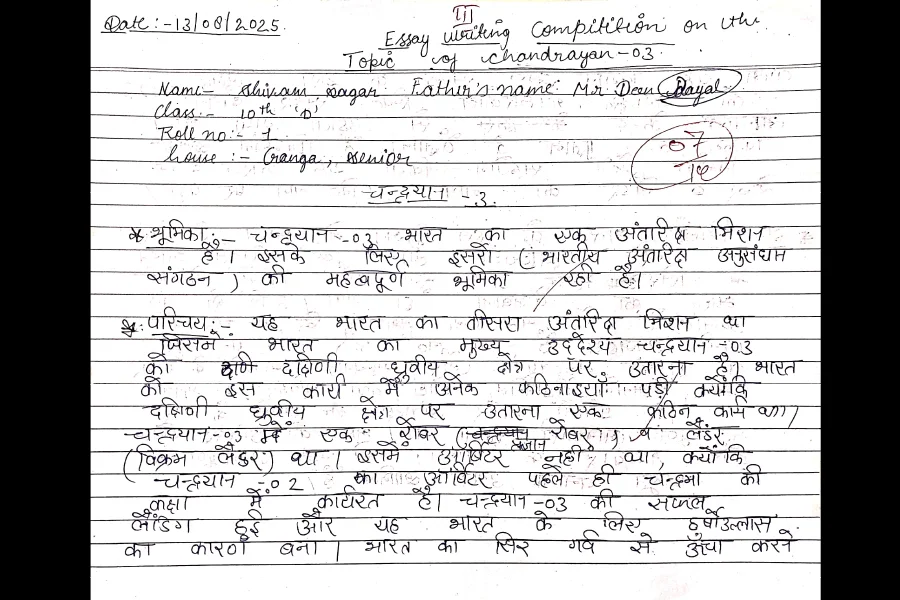 Date:-13/08/2025.
III
Essay writing Compitition on the
Topic of Chandrayan-03
Name:- Shivam Sagar Father's name: Mr Deen Dayal
Class:- 10th 'D'
Roll no:- 1
house:- Ganga, senior
07/10
चन्द्रयान -3.
* भूमिका:- चन्द्रयान -03 भारत का एक अंतरिक्ष मिशन
है। इसके लिए इसरो (भारतीय अंतरिक्ष अनुसंधान
संगठन) की महत्वपूर्ण भूमिका रही है।
* परिचय:- यह भारत का तीसरा अंतरिक्ष मिशन था
जिसमें भारत का मुख्य उद्देश्य चन्द्रयान -03
को दक्षिणी ध्रुवीय क्षेत्र पर उतारना है। भारत
को इस कार्य में अनेक कठिनाइयाँ पड़ी क्योंकि
दक्षिणी ध्रुवीय क्षेत्र पर उतारना एक कठिन कार्य था।
चन्द्रयान -03 में एक रोबर (प्रज्ञान रोबर) व लैंडर
(विक्रम लैंडर) था। इसमें ऑर्बिटर नहीं था, क्योंकि
चन्द्रयान -02 का ऑर्बिटर पहले ही चन्द्रमा की
कक्षा में कार्यरत है। चन्द्रयान -03 की सफल
लैंडिंग हुई और यह भारत के लिए हर्षोउल्लास
का कारण बना। भारत का सिर गर्व से ऊंचा करने